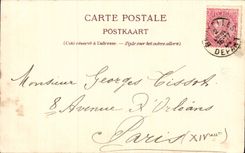 CARTE POSTALE
POSTKAART
(Côté réservé à l'adresse. — Zijde voor het adres alleen.)
Monsieur Georges Tissot
8 Avenue d'Orléans
Paris (XIVème)